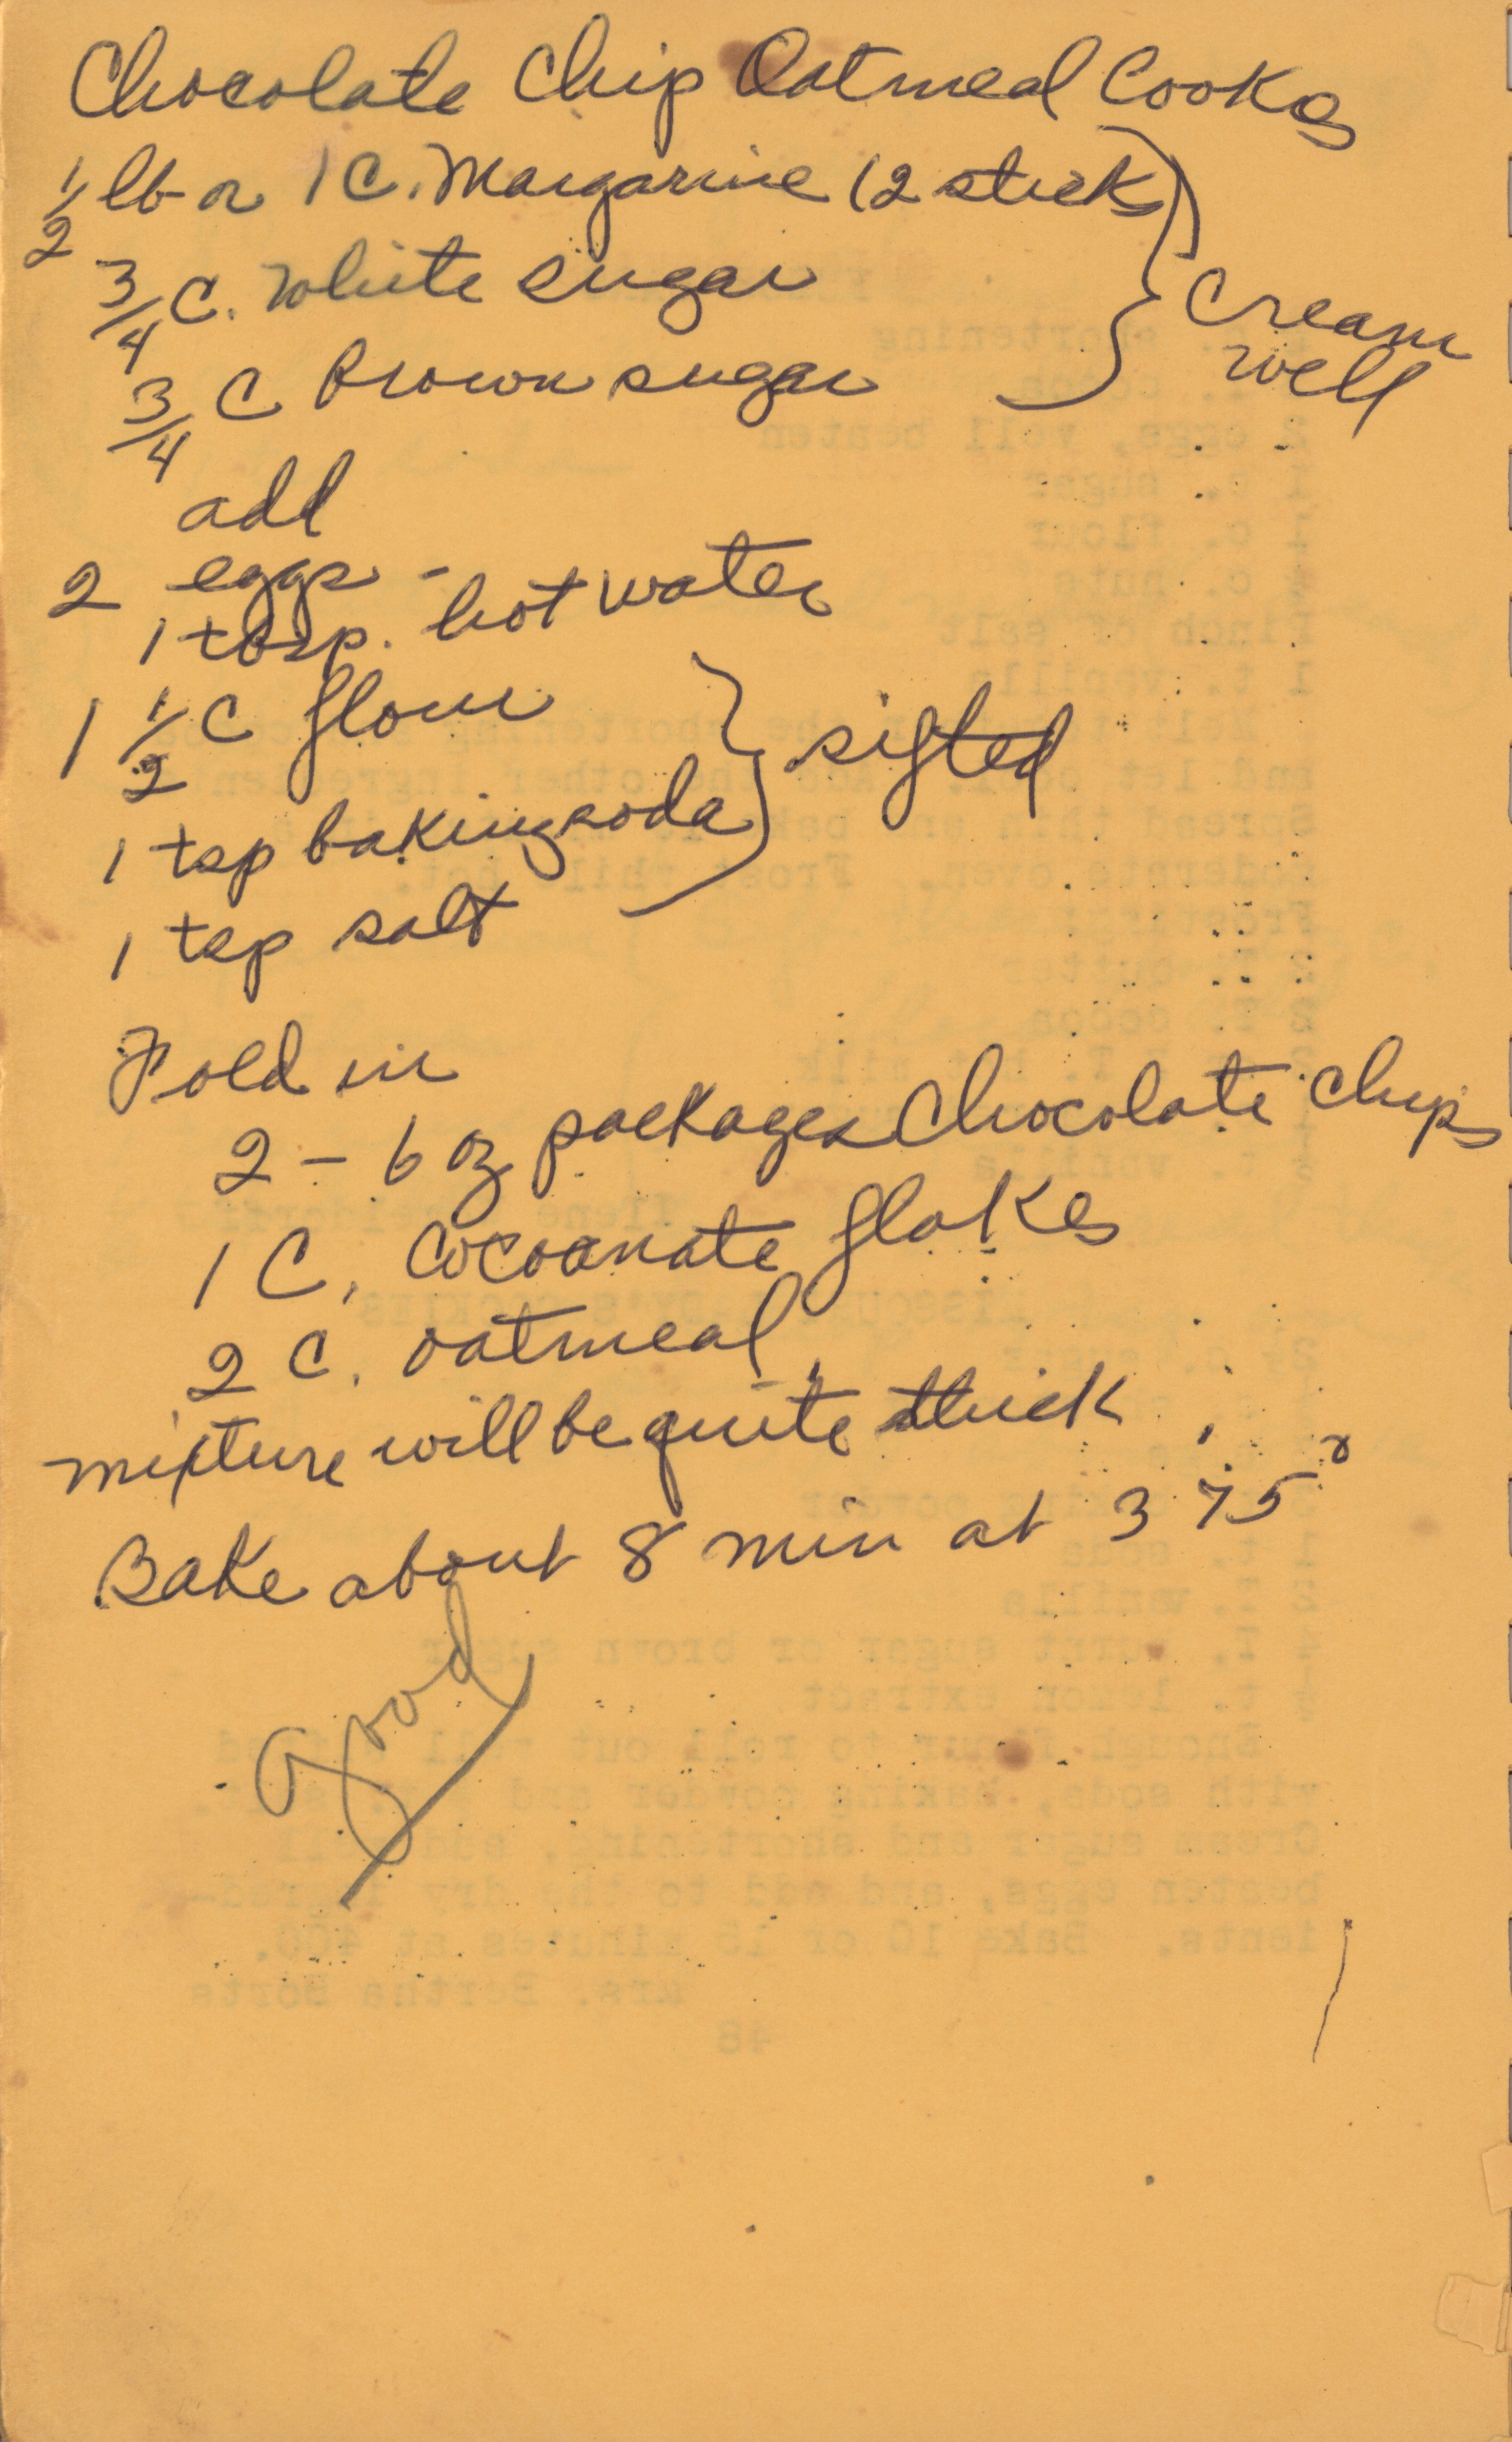 Chocolate Chip Oatmeal Cooks
1/2 lb or 1 C. Margarine (2 sticks)
3/4 C. White sugar
3/4 C Brown sugar
} Cream
well
add
2 eggs -
1 tbsp. hot water
1 1/2 C flour
} sifted
1 tsp baking soda
1 tsp salt
Fold in
2 - 6 oz packages Chocolate Chips
1 C. Cocoanate flakes
2 C. oatmeal
mixture will be quite thick
Bake about 8 min at 375°
Good